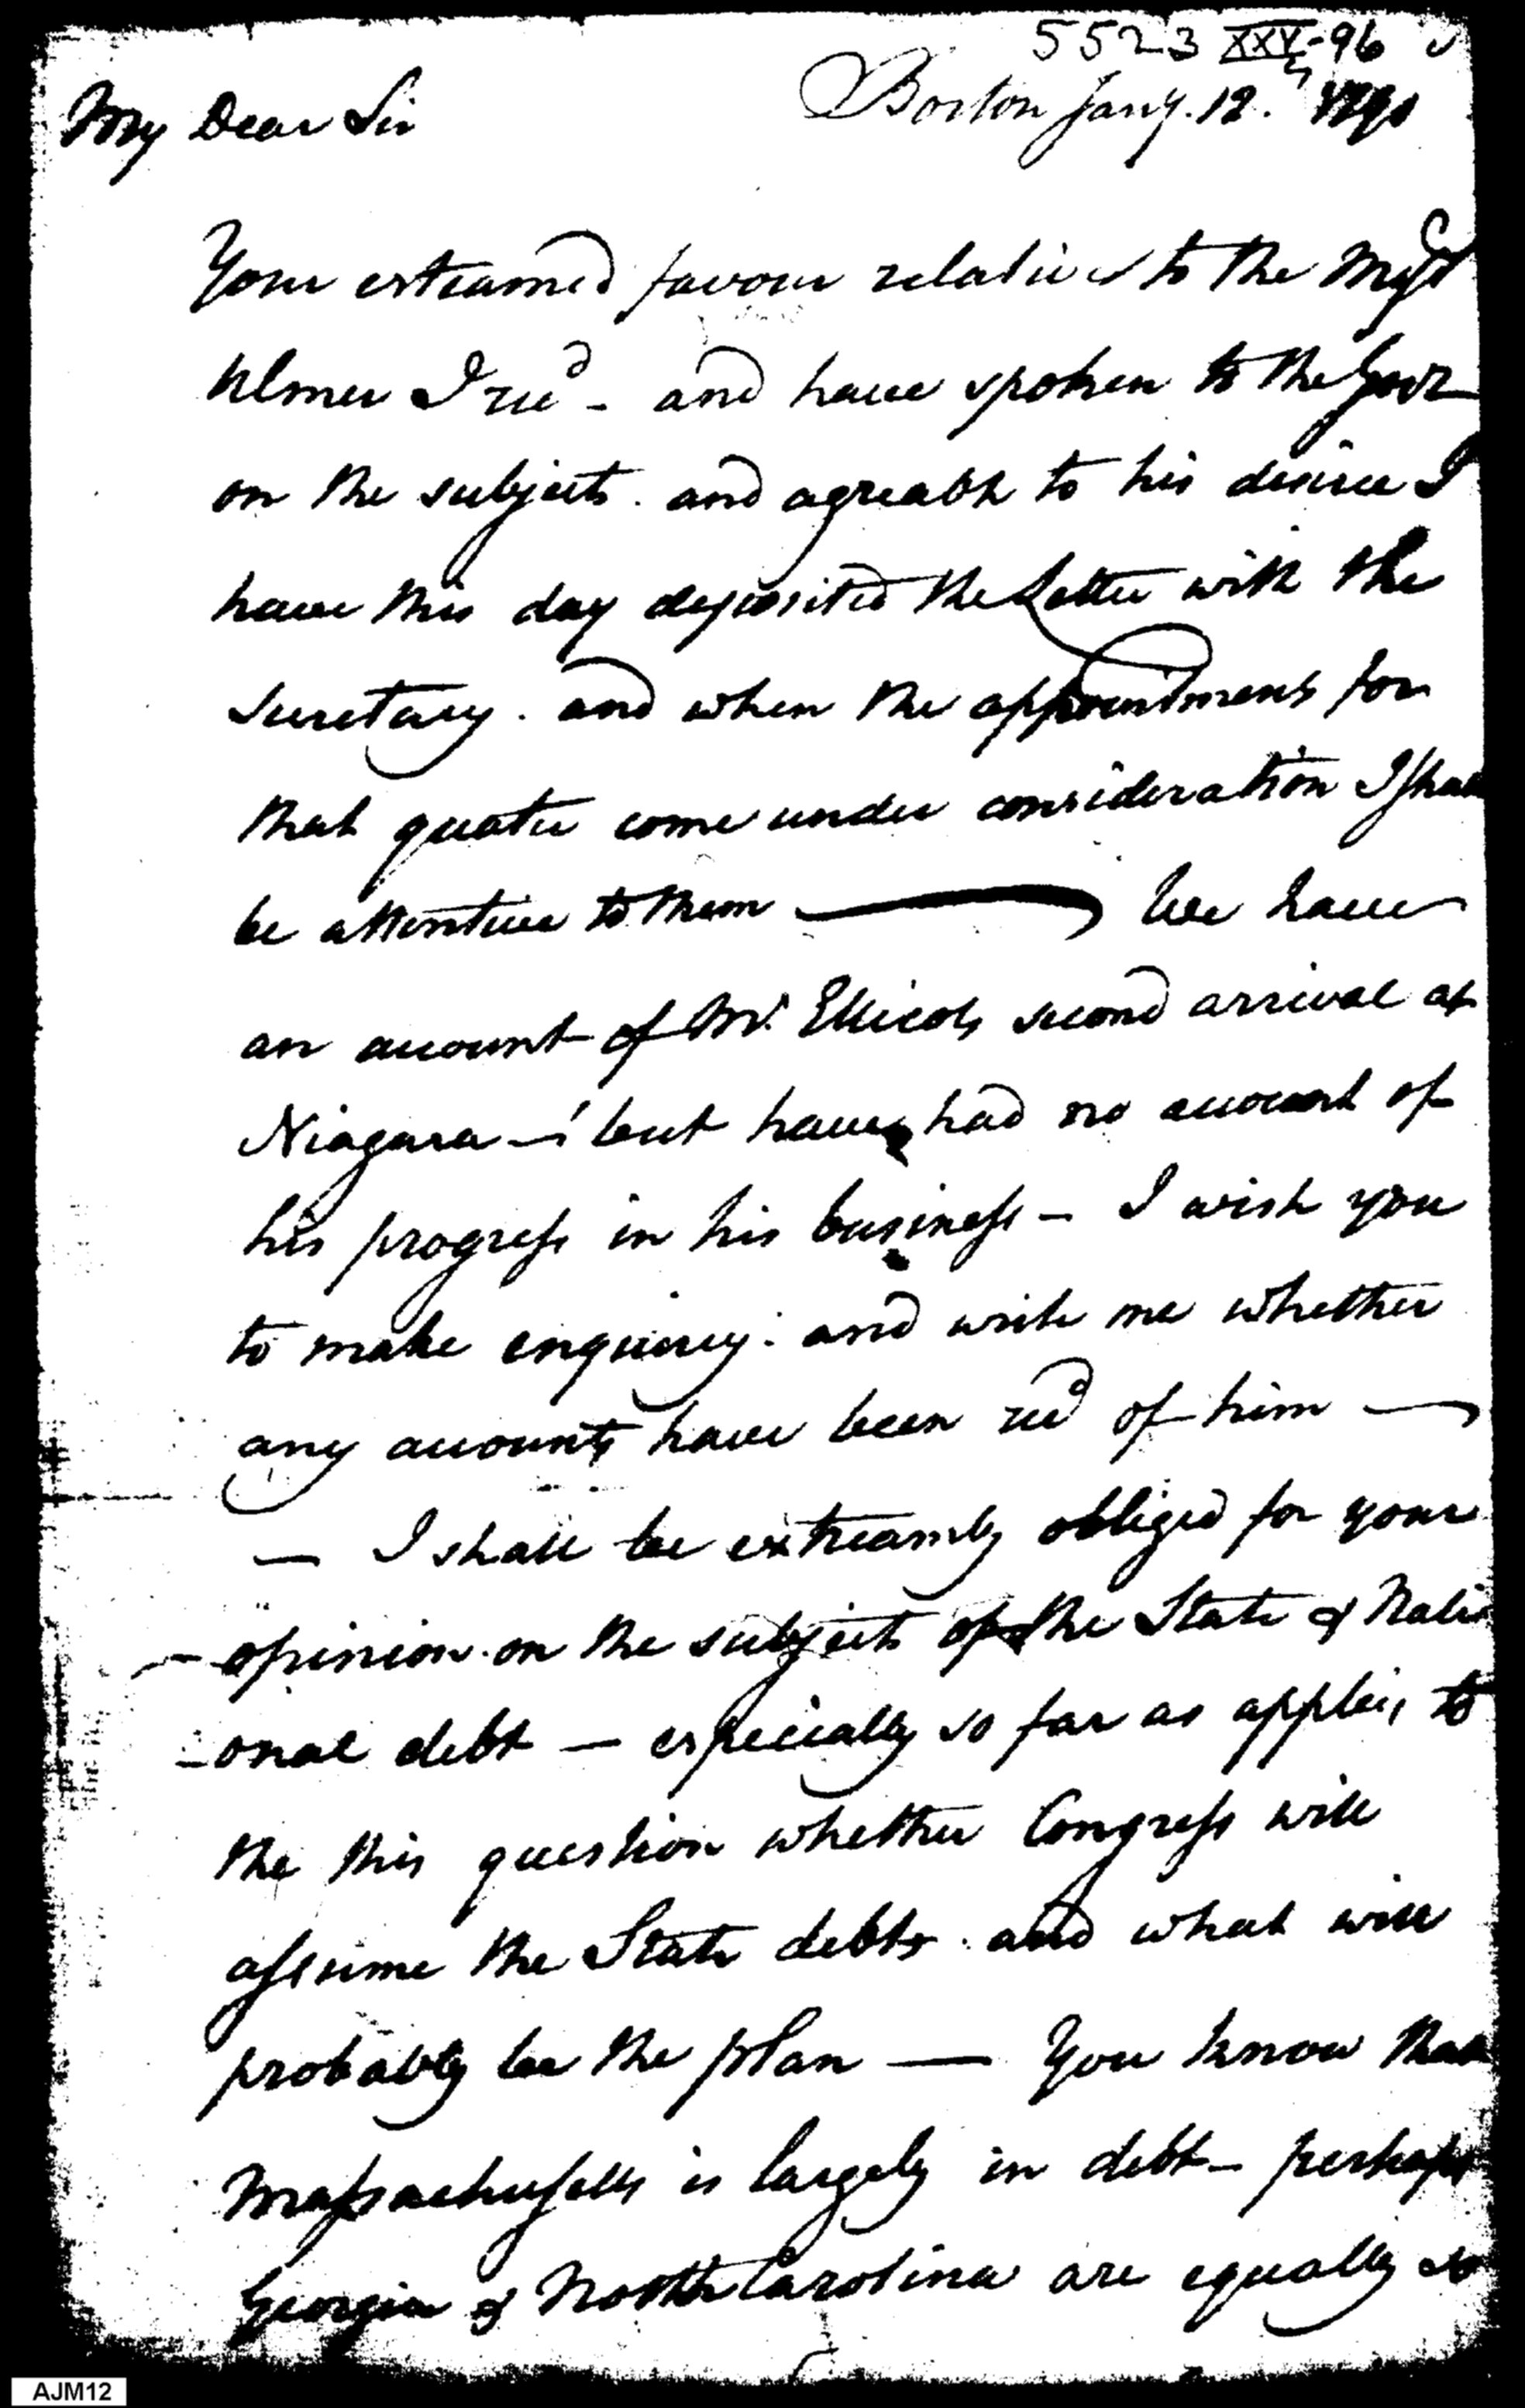 5523 XXV, 96
My Dear Sir
Boston Jany. 12. 1790
Your esteamed favour relative to the
Ulmer I recd - and have spoken to the Govr
on the subject. and agreable to his desire I
have this day deposited the Letter with the
Secretary. and when the appointments for
that quater come under consideration I shall
be attentive to them — We have
an account of Mr. Ellicots second arrival at
Niagara — but have had no account of
his progress in his business - I wish you
to make enquirey. and write me whether
any accounts have been recd of him —
— I shall be extreamly obliged for your
opinion. on the subject of the State & Nati
-onal debt — especially so far as applies to
the this question whether Congress will
assume the State debts. and what will
probably be the plan — You know that
Massachusetts is largely in debt - perhaps
Georgia & North Carolina are equally so
AJM12